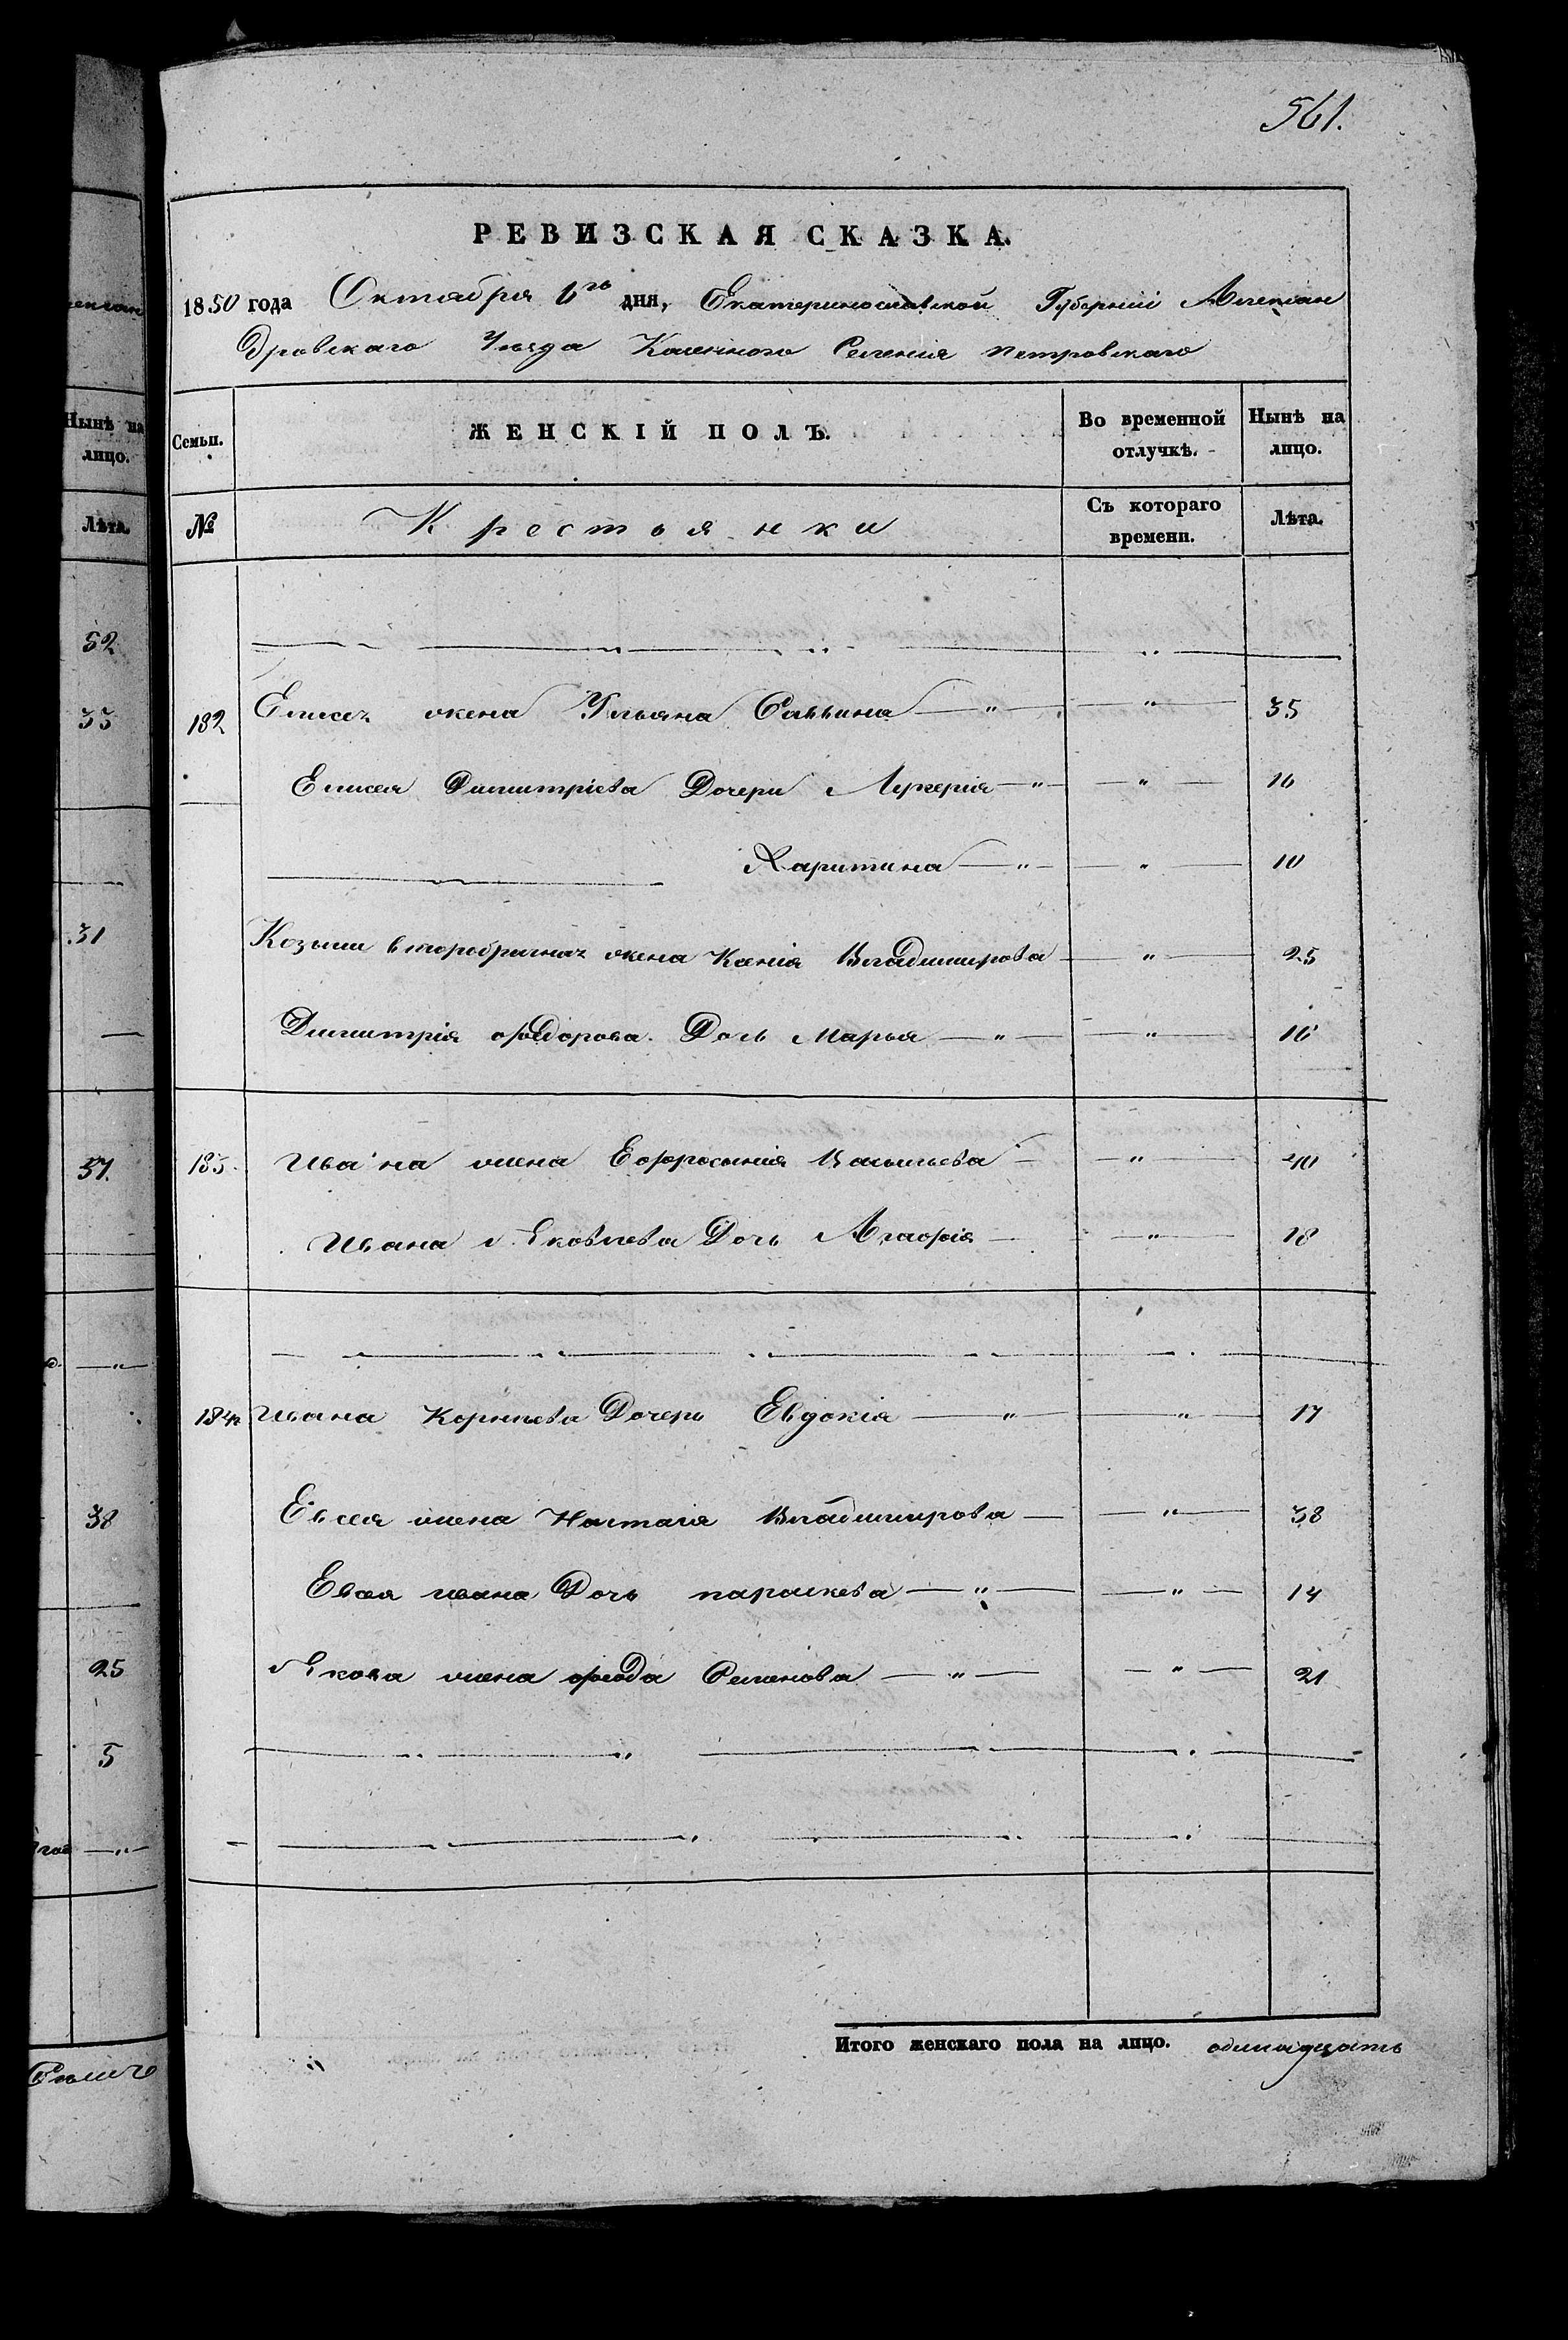 561.
РЕВИЗСКАЯ СКАЗКА.
1850 года Октября 6го дня, Екатеринославской Губерніи Алексан
дровскаго Уѣзда Казенного Селенія Петровскаго
Семьи. ЖЕНСКІЙ ПОЛЪ. Во временной отлучкѣ. Нынѣ на лицо.
№ Крестьянки Съ котораго времени. Лѣта.
182 жена Ульяна Саввина — " — — " — 35
Елисея Димитріева Дочери Лукерія — " — — " — 16
Харитина — " — — " — 10
Козьмы второбрачная жена Ксенія Владимирова — " — 25
Димитрія Фѣодорова Дочь Марья — " — — " — 16
183. Ивана жена Ефросынія Васильева — — " — 40
Ивана Яковлева Дочь Агафія — — " — 18
184 Ивана Корнѣева Дочерь Евдокія — " — — " — 17
Евсея жена Настасія Владимирова — — " — 38
Евсея Ивана Дочь параскева — " — — " — 14
Якова жена Семенова — " — — " — 21
Итого женскаго пола на лицо. одинадцать
Нынѣ на
лицо.
Лѣта.
52
33
31
57.
— " —
38
25
5
— " —